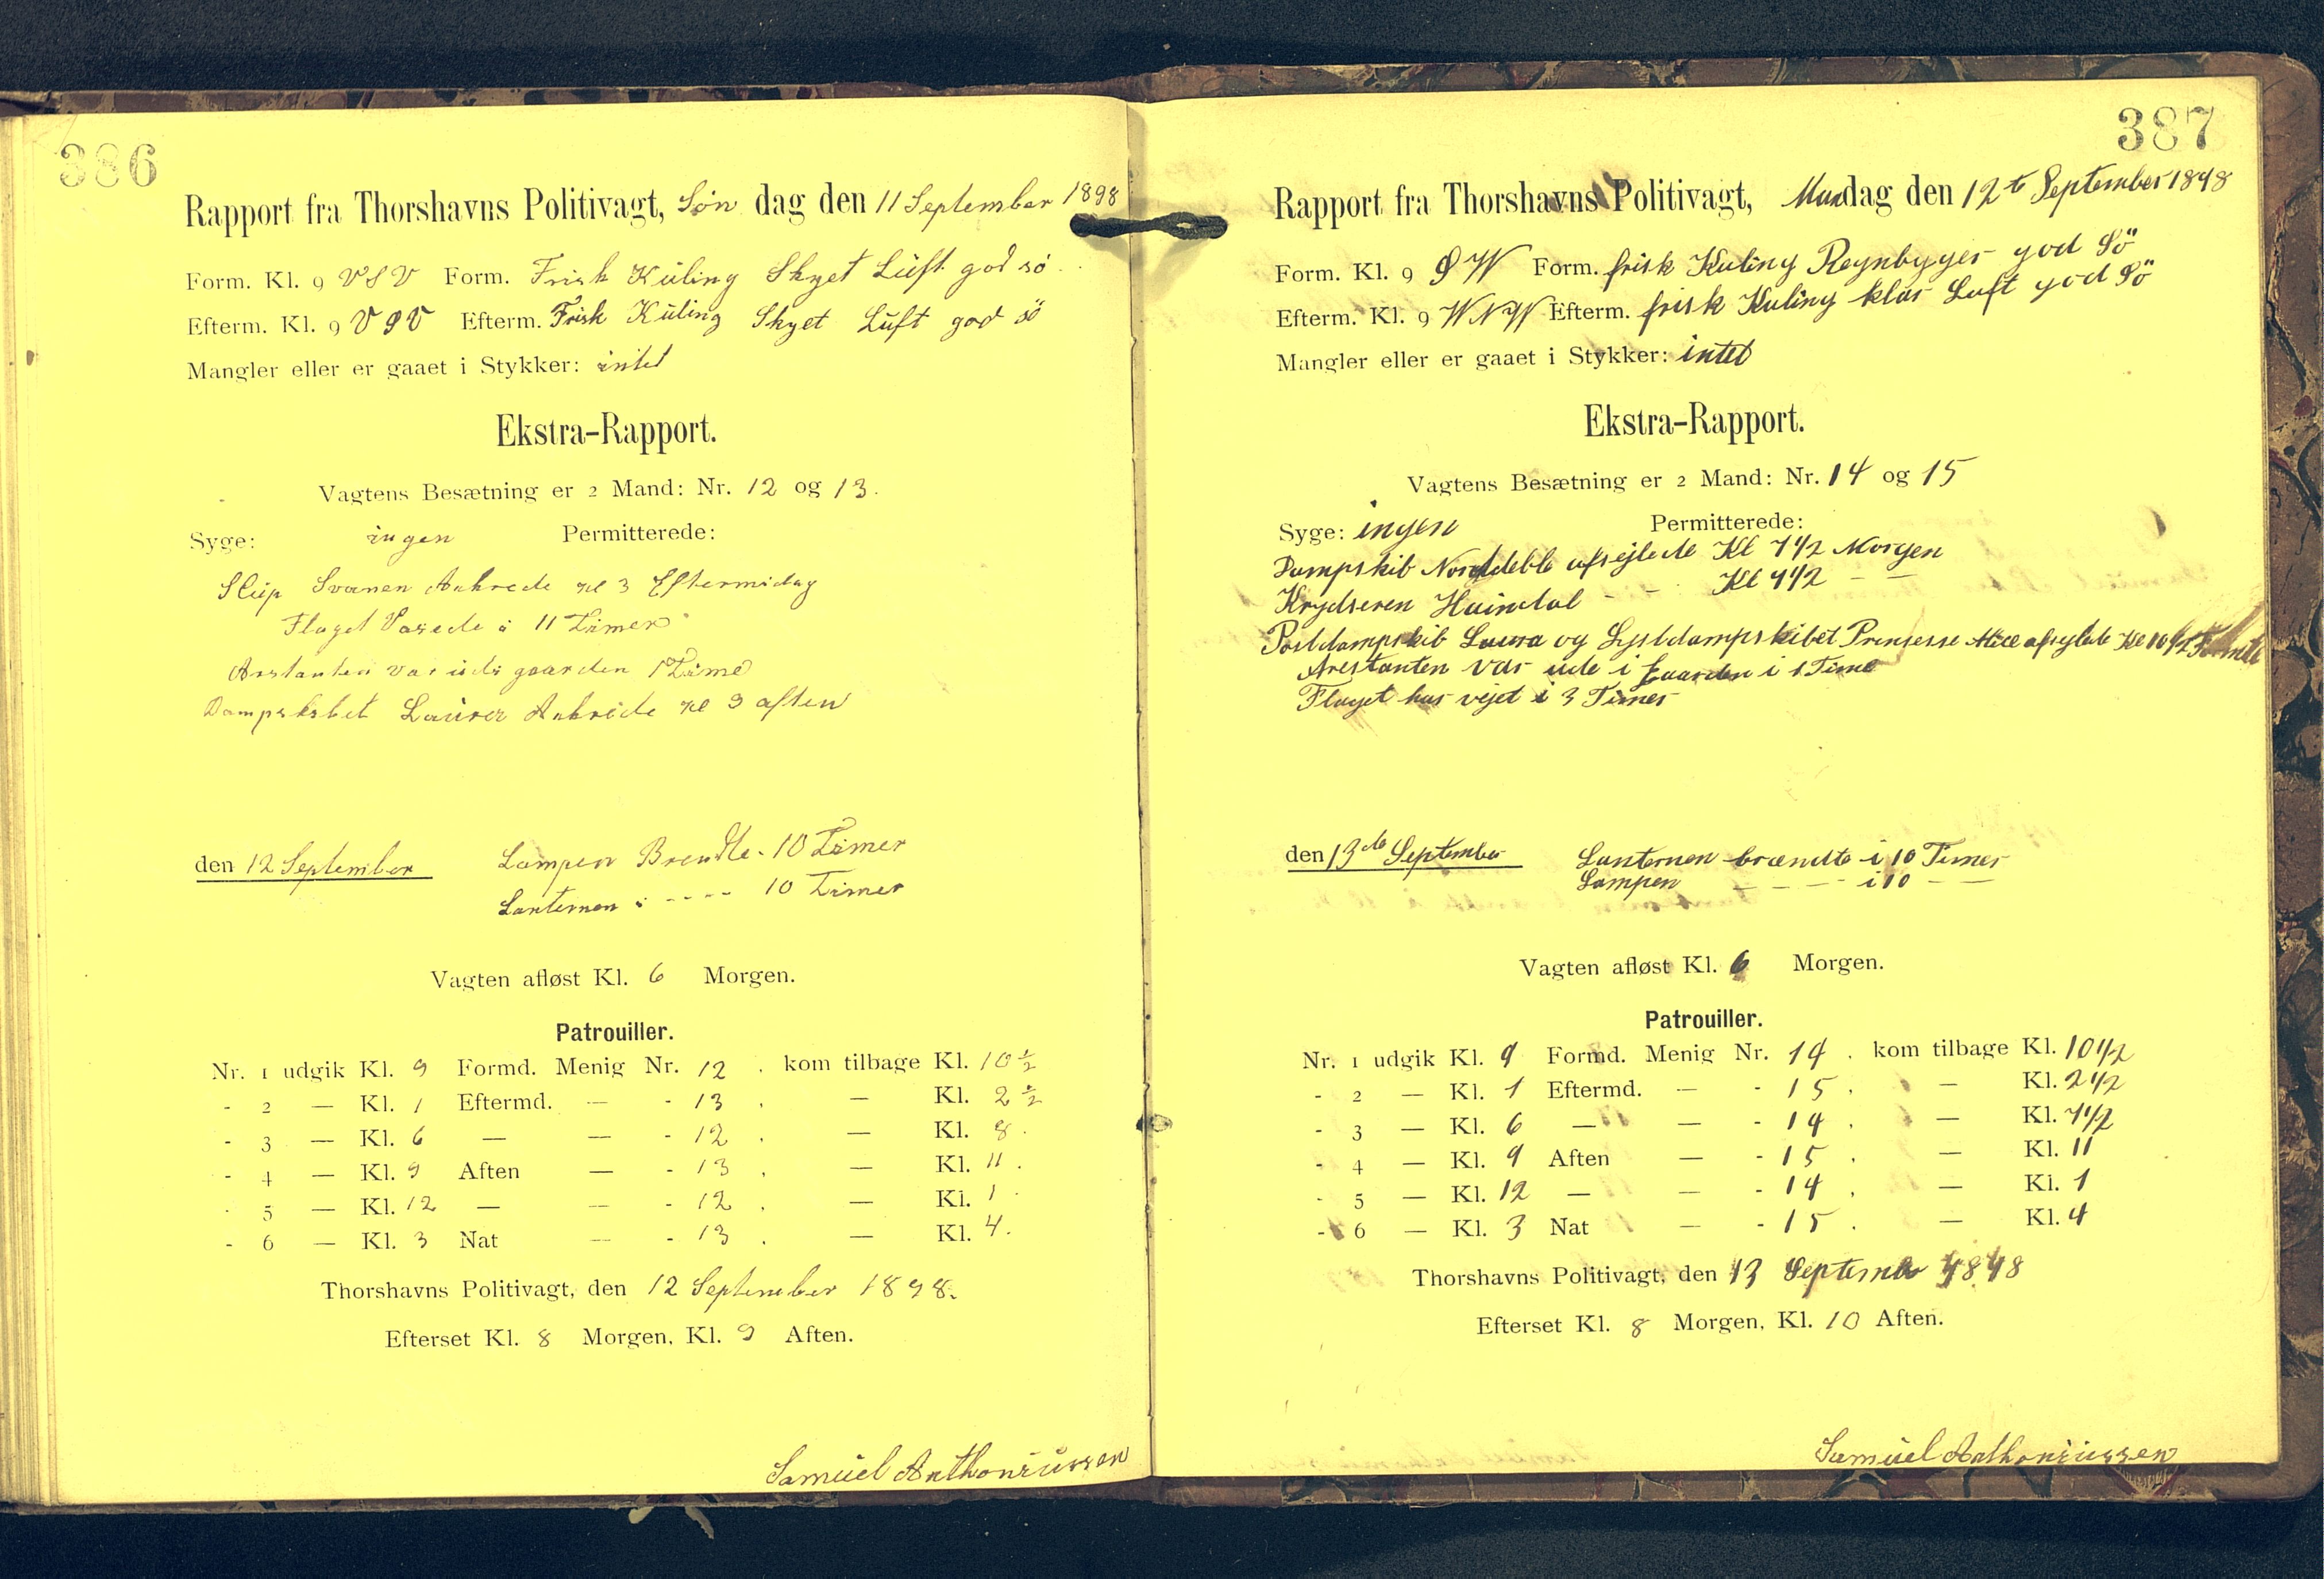 386
Rapport fra Thorshavns Politivagt, Søn dag den 11 September 1898
Form. Kl. 9 VSV Form. Frisk Kuling Skyet Luft god sø
Efterm. Kl. 9 VSV Efterm. Frisk Kuling Skyet Luft god sö
Mangler eller er gaaet i Stykker: intet
Ekstra-Rapport.
Vagtens Besætning er 2 Mand: Nr. 12 og 13.
Syge: ingen Permitterede:
Slup Svanen Ankrede Kl 3 Eftermidag
Flaget Vajede i 11 Timer
Arstanten var ude i gaarden 1 Time
Dampskibet Laura Ankrede Kl 3 aften
den 12 September Lampen Brendte - 10 Timer
Lanternen i - - - - 10 Timer
Vagten afløst Kl. 6 Morgen.
Patrouiller.
Nr. 1 udgik Kl. 9 Formd. Menig Nr. 12 . kom tilbage Kl. 10 ½
- 2 — Kl. 1 Eftermd. — - 13 . — Kl. 2 ½
- 3 — Kl. 6 — — - 12 . — Kl. 8 .
- 4 — Kl. 9 Aften — - 13 . — Kl. 11 .
- 5 — Kl. 12 — — - 12 . — Kl. 1 .
- 6 — Kl. 3 Nat — - 13 . — Kl. 4 .
Thorshavns Politivagt, den 12 September 1898.
Efterset Kl. 8 Morgen, Kl. 9 Aften.
Samuel Anthoniussen
387
Rapport fra Thorshavns Politivagt, Mandag den 12te September 1898
Form. Kl. 9 SW Form. frisk Kuling Regnbyger god Sö
Efterm. Kl. 9 WNW Efterm. frisk Kuling klar Luft god Sö
Mangler eller er gaaet i Stykker: intet
Ekstra-Rapport.
Vagtens Besætning er 2 Mand: Nr. 14 og 15
Syge: ingen Permitterede:
Dampskib afsejlede Kl 7 1/2 Morgen
Krydseren Haimdal - - Kl 7 1/2 - -
Postdampskib Laura og Lystdampskibet Prinsesse afsejlede Kl 10 1/2
Arestanten var ude i Gaarden i 1 Time
Flaget har vejet i 3 Timer
den 13de September Lanternen brændte i 10 Timer
Lampen - - - - i 10 - -
Vagten afløst Kl. 6 Morgen.
Patrouiller.
Nr. 1 udgik Kl. 9 Formd. Menig Nr. 14 . kom tilbage Kl. 10 1/2
- 2 — Kl. 1 Eftermd. — - 15 . — Kl. 2 1/2
- 3 — Kl. 6 — — - 14 . — Kl. 7 1/2
- 4 — Kl. 9 Aften — - 15 . — Kl. 11
- 5 — Kl. 12 — — - 14 . — Kl. 1
- 6 — Kl. 3 Nat — - 15 . — Kl. 4
Thorshavns Politivagt, den 13 September 1898
Efterset Kl. 8 Morgen, Kl. 10 Aften.
Samuel Anthoniussen